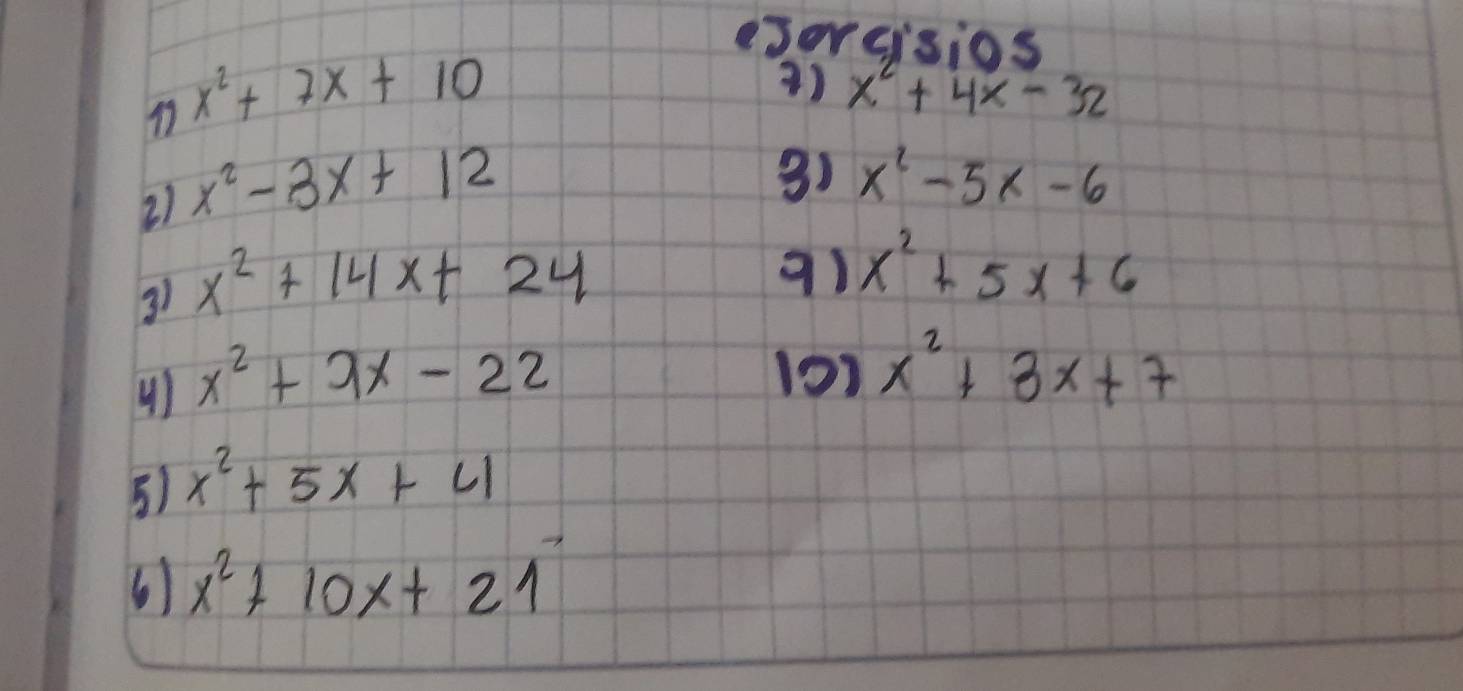 ejercisios
1) x² + 7x + 10
2) x² - 8x + 12
3) x² + 14x + 24
4) x² + 9x - 22
5) x² + 5x + 4
6) x² + 10x + 21
7) x² + 4x - 32
8) x² - 5x - 6
9) x² + 5x + 6
10) x² + 8x + 7